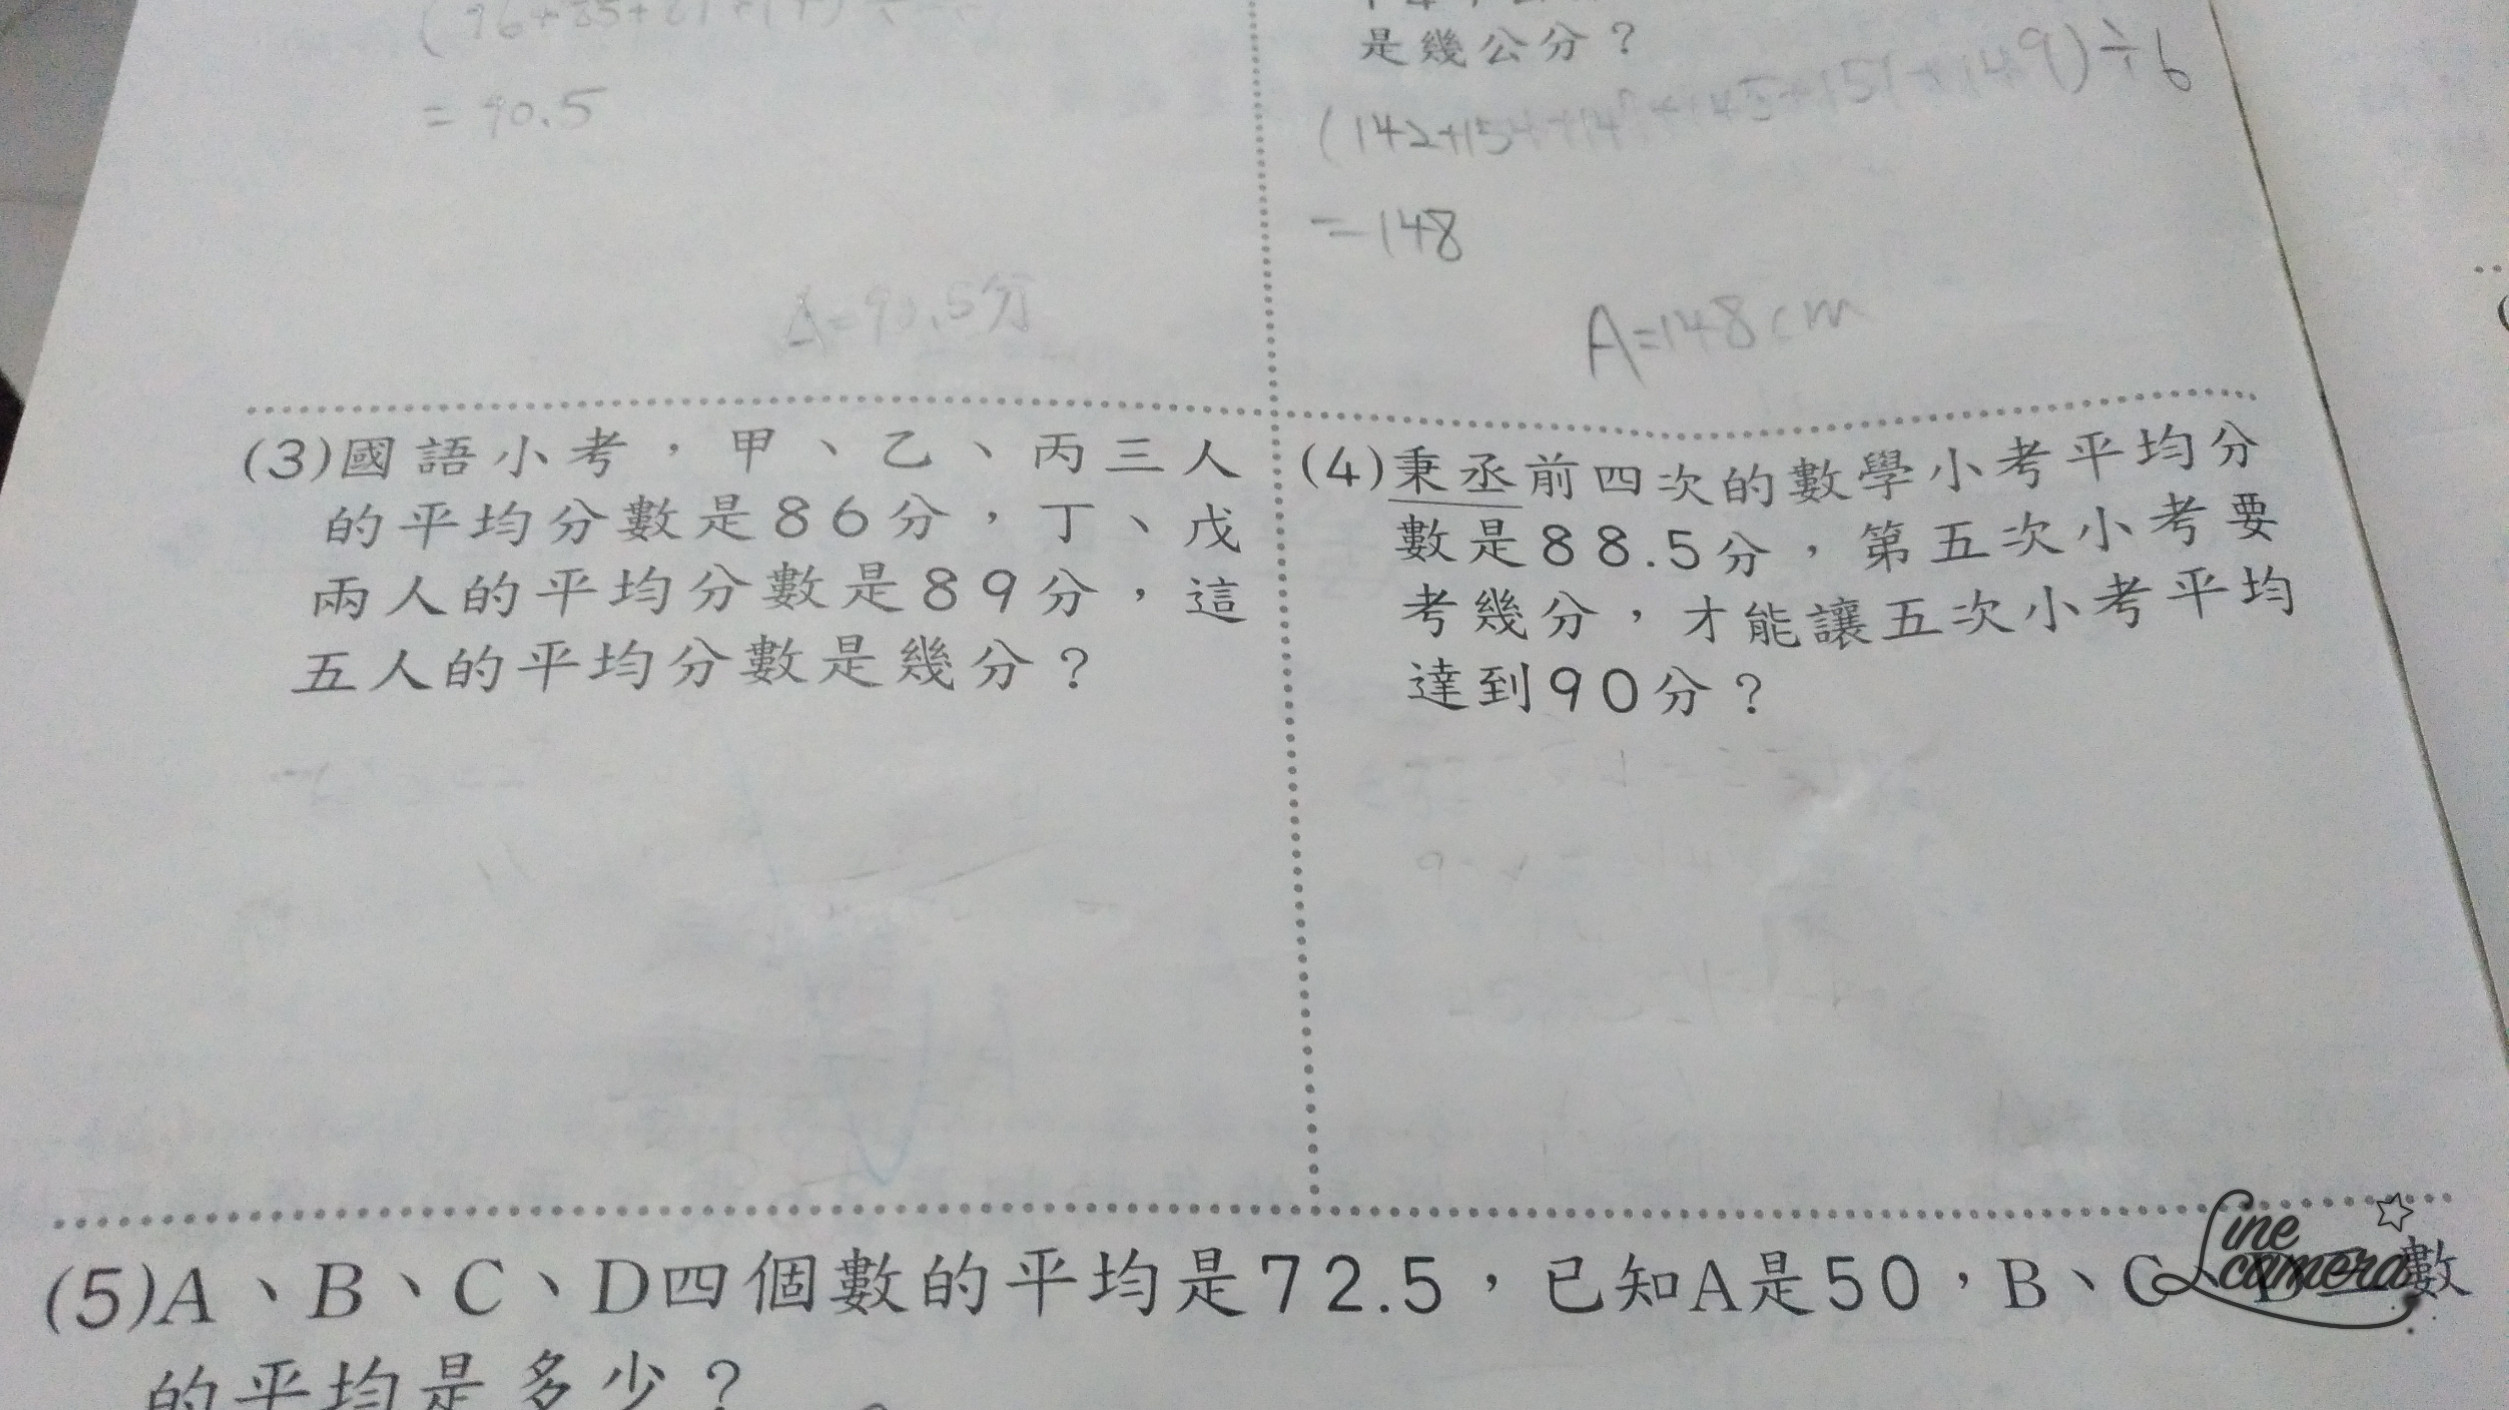 = 90.5
A=90.5分
是幾公分？
÷6
=148
A=148cm
(3)國語小考，甲、乙、丙三人
的平均分數是86分，丁、戊
兩人的平均分數是89分，這
五人的平均分數是幾分？
(4)秉丞前四次的數學小考平均分
數是88.5分，第五次小考要
考幾分，才能讓五次小考平均
達到90分？
(5)A、B、C、D四個數的平均是72.5，已知A是50，B、C、D三數
的平均是多少？
Line camera